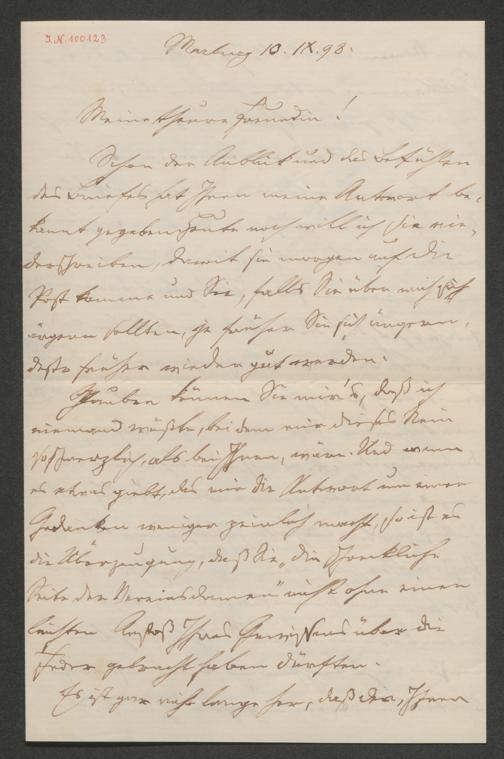 J.N. 100123
Marburg 10. IX. 98.
Meine theure Freundin!
Schon der Anblick und das Befühlen
des Briefes hat Ihnen meine Antwort be-
kannt gegeben. Heute noch will ich sie nie-
derschreiben, damit sie morgen auf die
Post komme und Sie, falls Sie über mich sich
ärgern sollten, je früher Sie sich ärgern,
desto früher wieder gut werden.
Glauben können Sie mir's, daß ich
niemand wüßte, bei dem mir dieses Nein
so schmerzlich, als bei Ihnen, wäre. Und wenn
es etwas giebt, das mir die Antwort um einen
Gedanken weniger peinlich macht, so ist es
die Überzeugung, daß Sie „die
Seite der Vereinsdamen" nicht ohne einen
leichten Anstoß Ihres Gewissens über die
Feder gebracht haben dürften.
Es ist gar nicht lange her, daß der, Ihnen